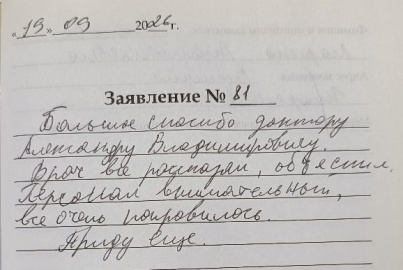 «19» 09 2026 г.
Заявление № 81
Большое спасибо доктору
Александру Владимировичу.
Врач все рассказал, объяснил.
Персонал внимательный,
все очень понравилось.
Приду еще.